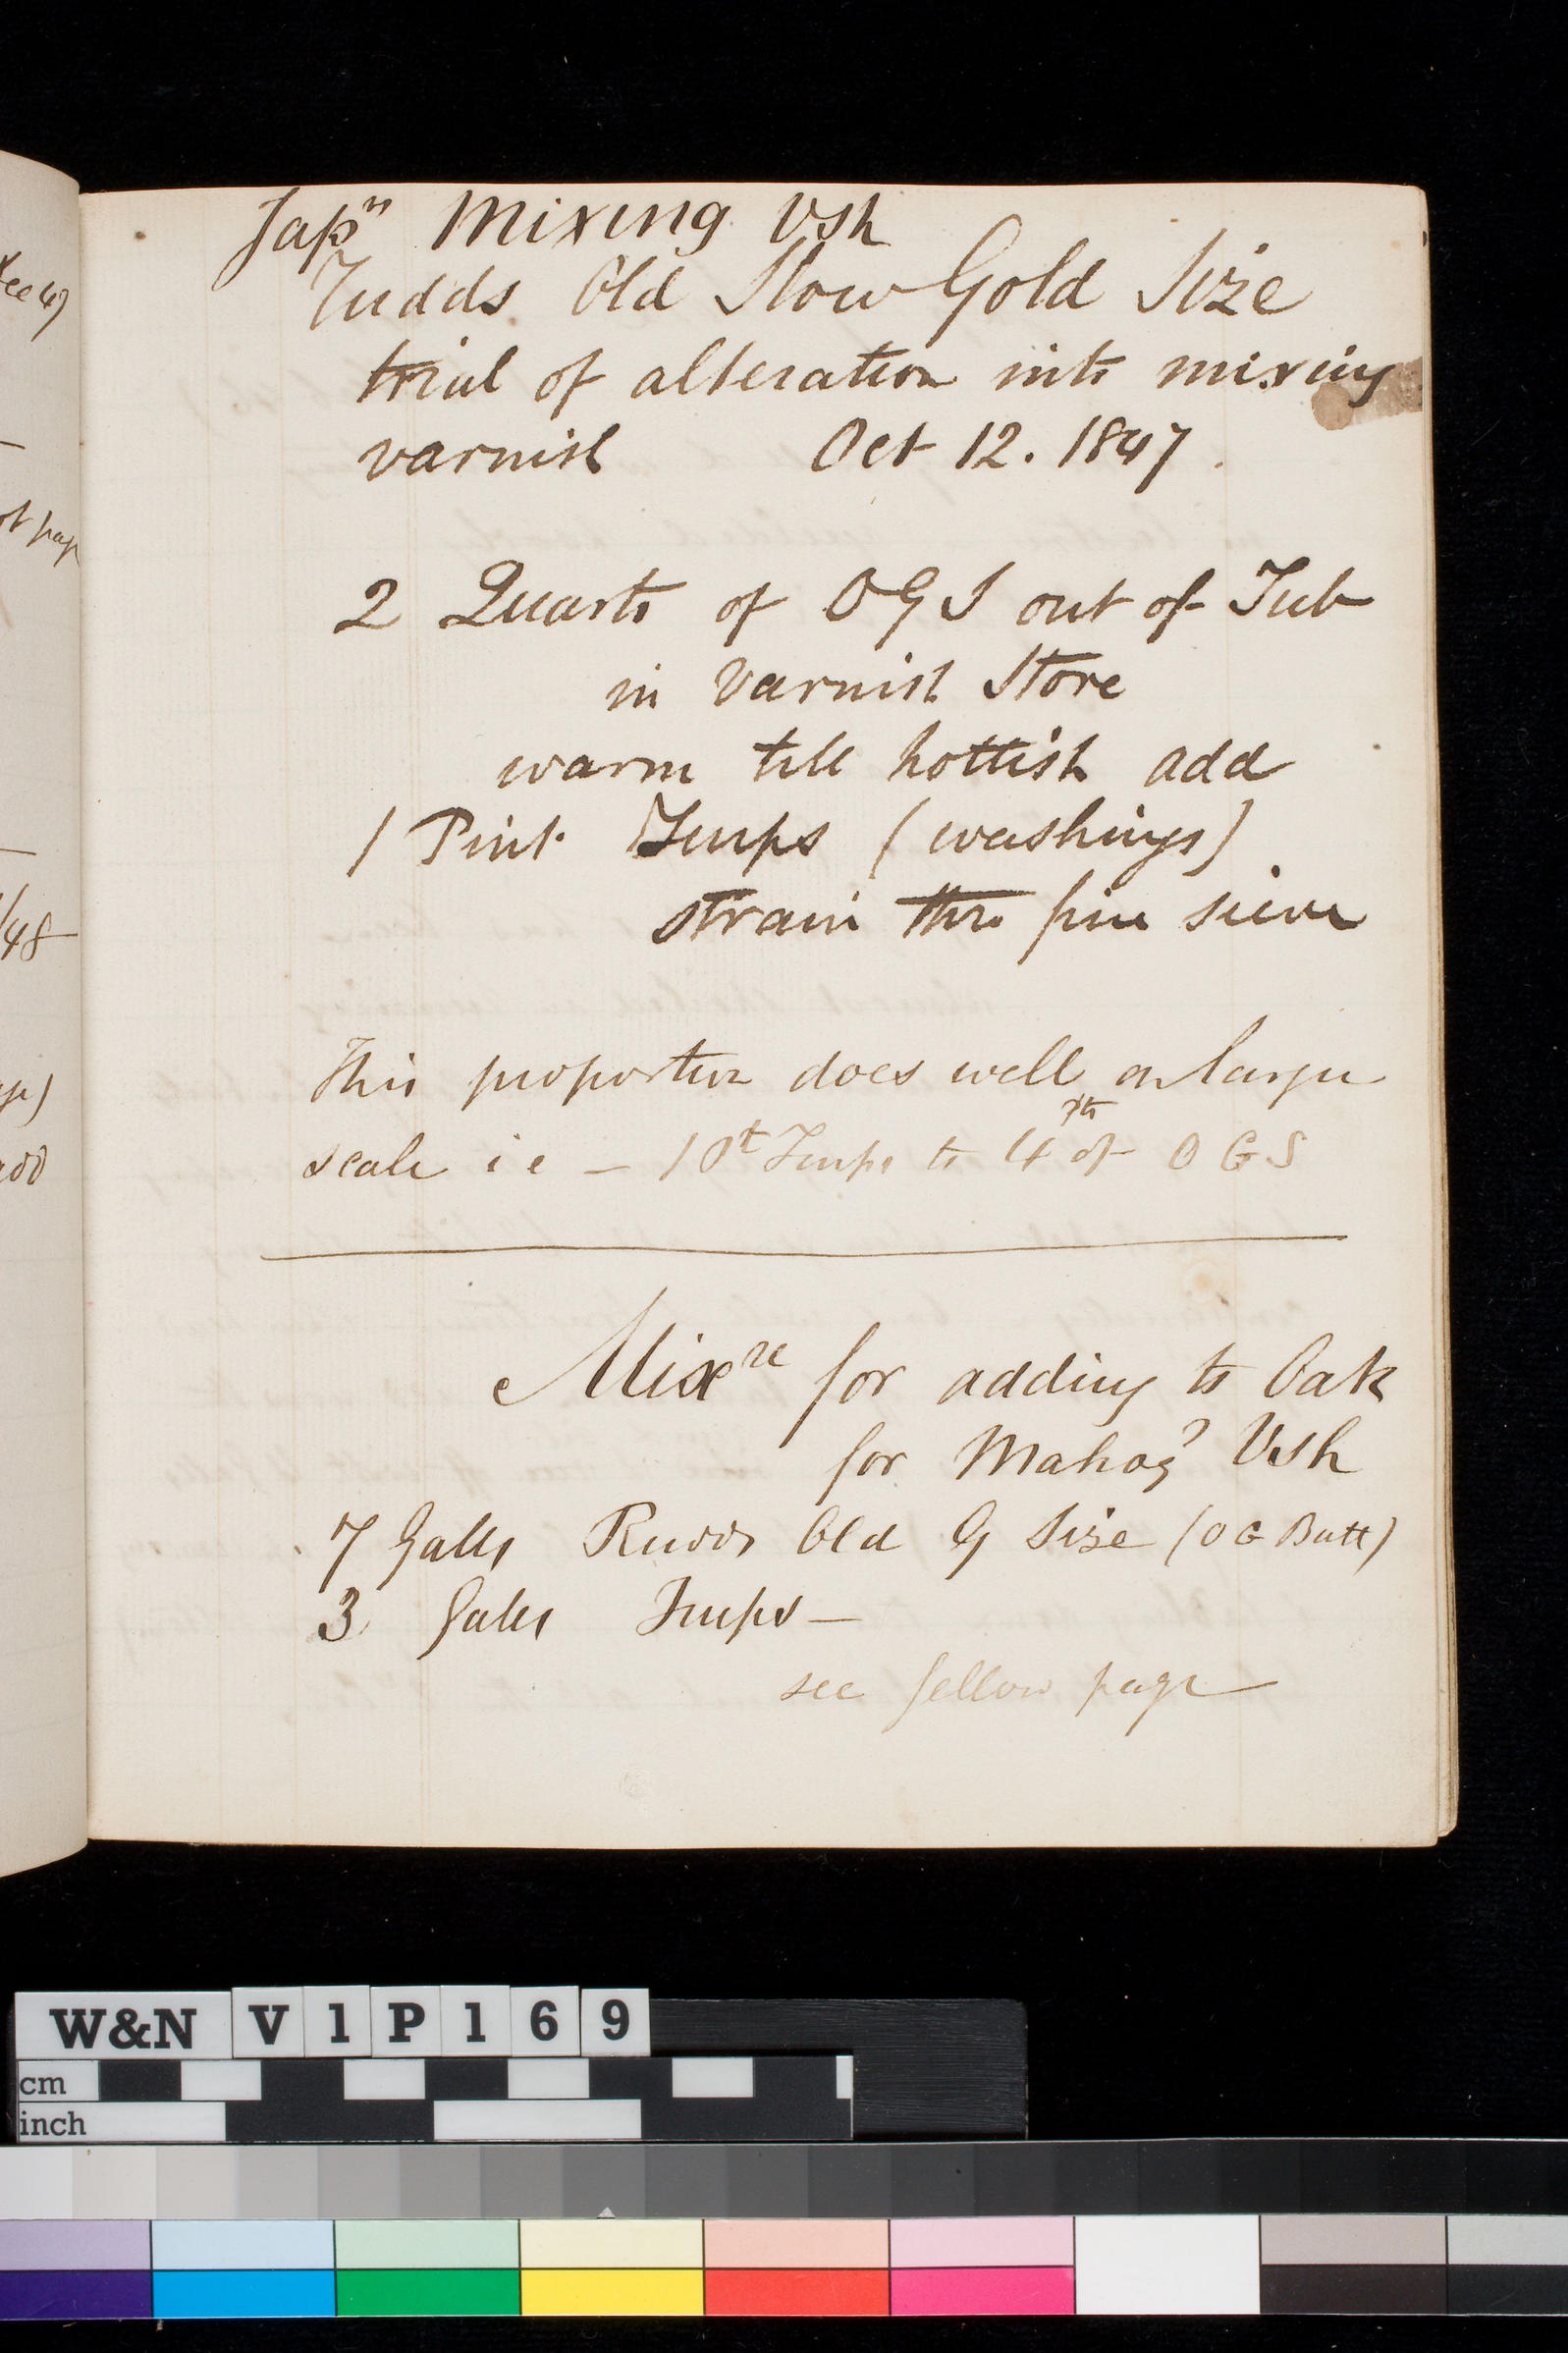 Japn Mixing Vsh
Rudds Old Slow Gold Size
trial of alteration into mixing
varnish Oct 12. 1847.
2 Quarts of OGS out of Tub
in Varnish Store
warm till hottish add
1 Pint Turps (washings)
strain thro fine sieve
This proportion does well on large
scale i e - 1 Qt Turps to 4 qts of OGS
Mixre for adding to Oak
for Mahogy Vsh
7 Galls Rudds Old G Size (OG Butt)
3 Galls Turps -
see fellow page
W&N V1P169
cm
inch